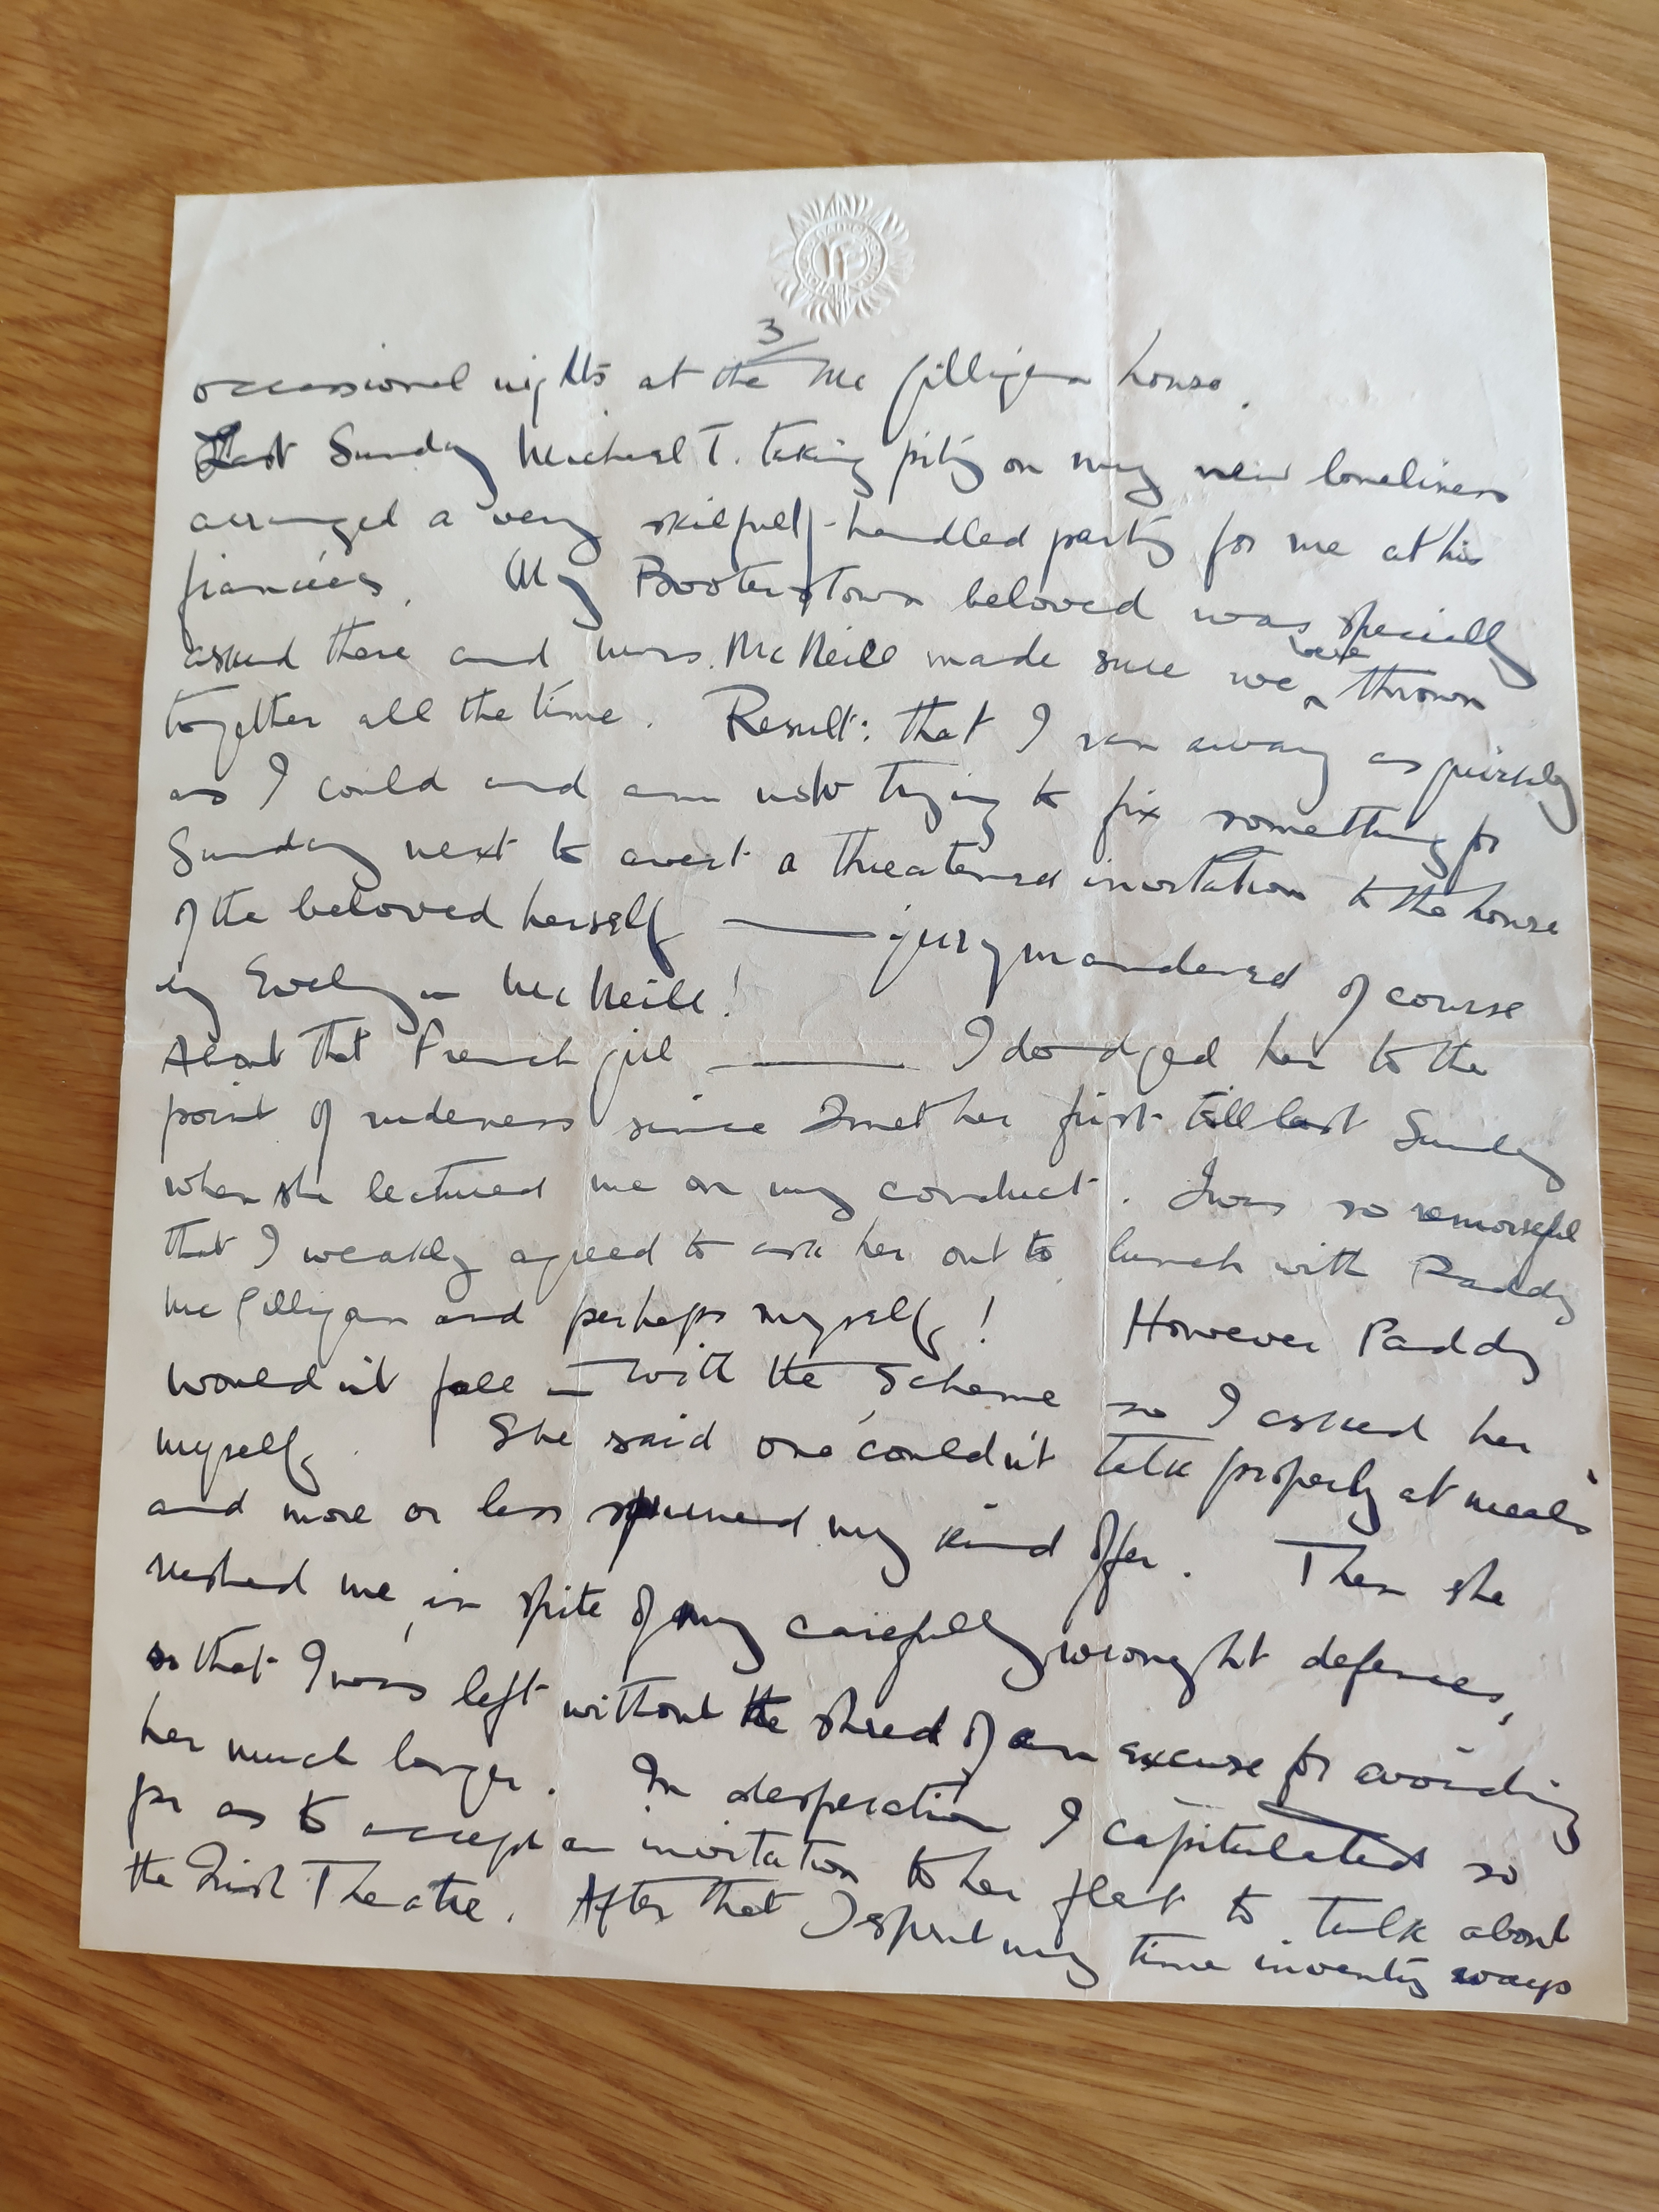 3/
occasional nights at the McGilligan house.
Last Sunday Michael T. taking pity on my new loneliness
arranged a very skilfully-handled party for me at his
fiancées. My Booterstown beloved was specially
asked there and Mrs. McNeill made sure we were thrown
together all the time. Result: that I ran away as quickly
as I could and am now trying to fix something for
Sunday next to avert a threatened invitation to the house
of the beloved herself — jerrymandered of course
by Evelyn McNeill!
About that French girl — I dodged her to the
point of rudeness since I met her first till last Sunday
when she lectured me on my conduct. I was so remorseful
that I weakly agreed to ask her out to lunch with Paddy
McGilligan and perhaps myself! However Paddy
wouldn't fall in with the scheme so I asked her
myself. She said one couldn't talk properly at meals
and more or less spurned my kind offer. Then she
rushed me in spite of my carefully wrought defences,
so that I was left without the shred of an excuse for avoiding
her much longer. In desperation I capitulated so
far as to accept an invitation to her flat to talk about
the Irish Theatre. After that I spent my time inventing ways